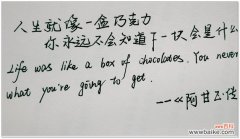 人生就像一盒巧克力
你永远不会知道下一块会是什么
Life was like a box of chocolates. You never
what you're going to get.
——《阿甘正传
www.百科